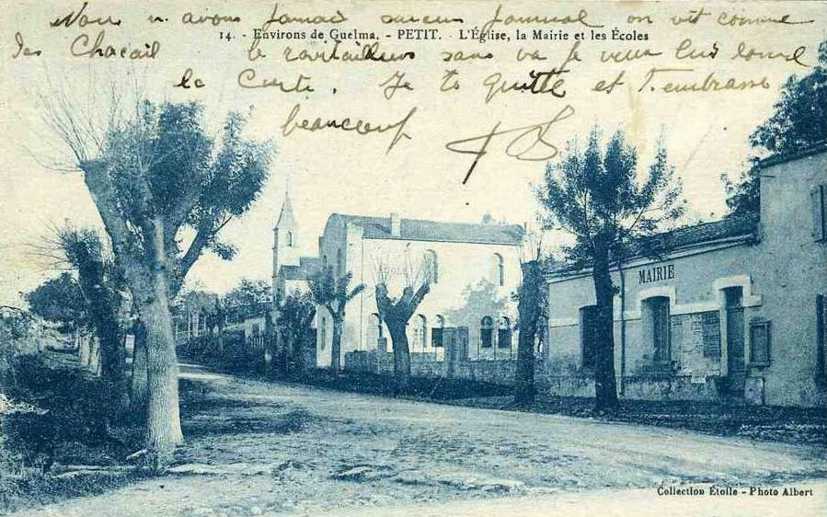 Nous n'avons jamais aucun journal on vit comme
14. - Environs de Guelma. - PETIT. - L'Église, la Mairie et les Écoles
des Chacail le ravitailleur sans va je veux
la Carte. Je te quitte et t'embrasse
beaucoup
ÉCOLE
MAIRIE
Collection Étoile - Photo Albert